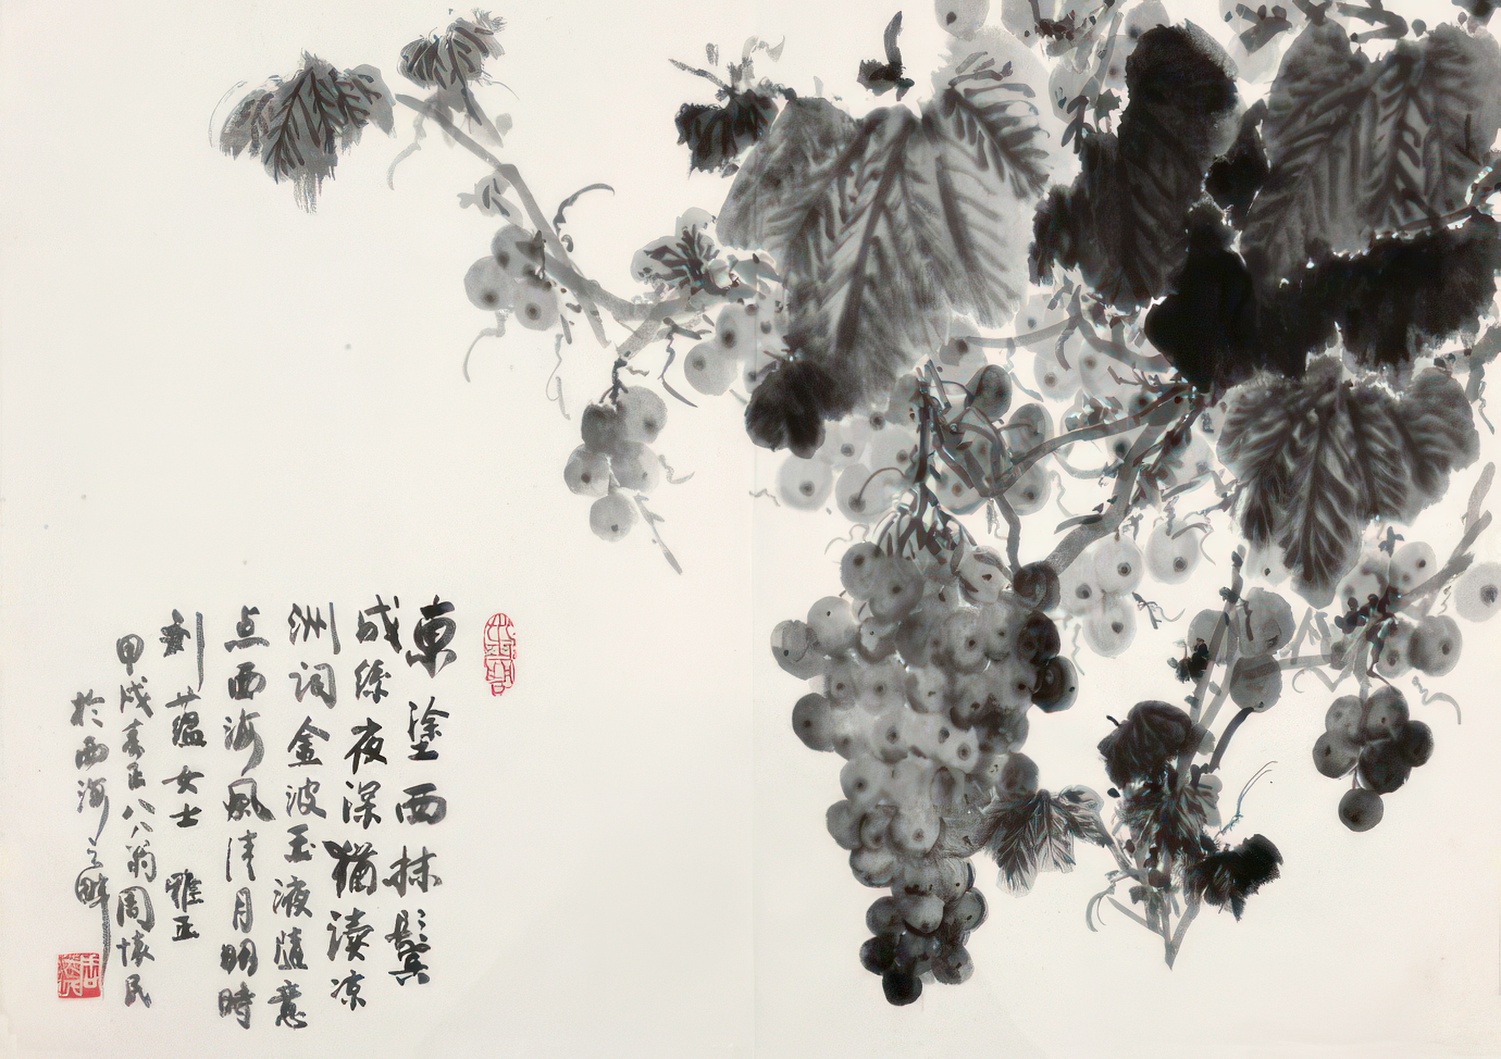 東塗西抹鬓
成絲夜深猶读凉
洲词金波玉液随意
点西海風清月明時
利蕴女士雅正
甲戌春日八八翁周怀民
於西海之畔